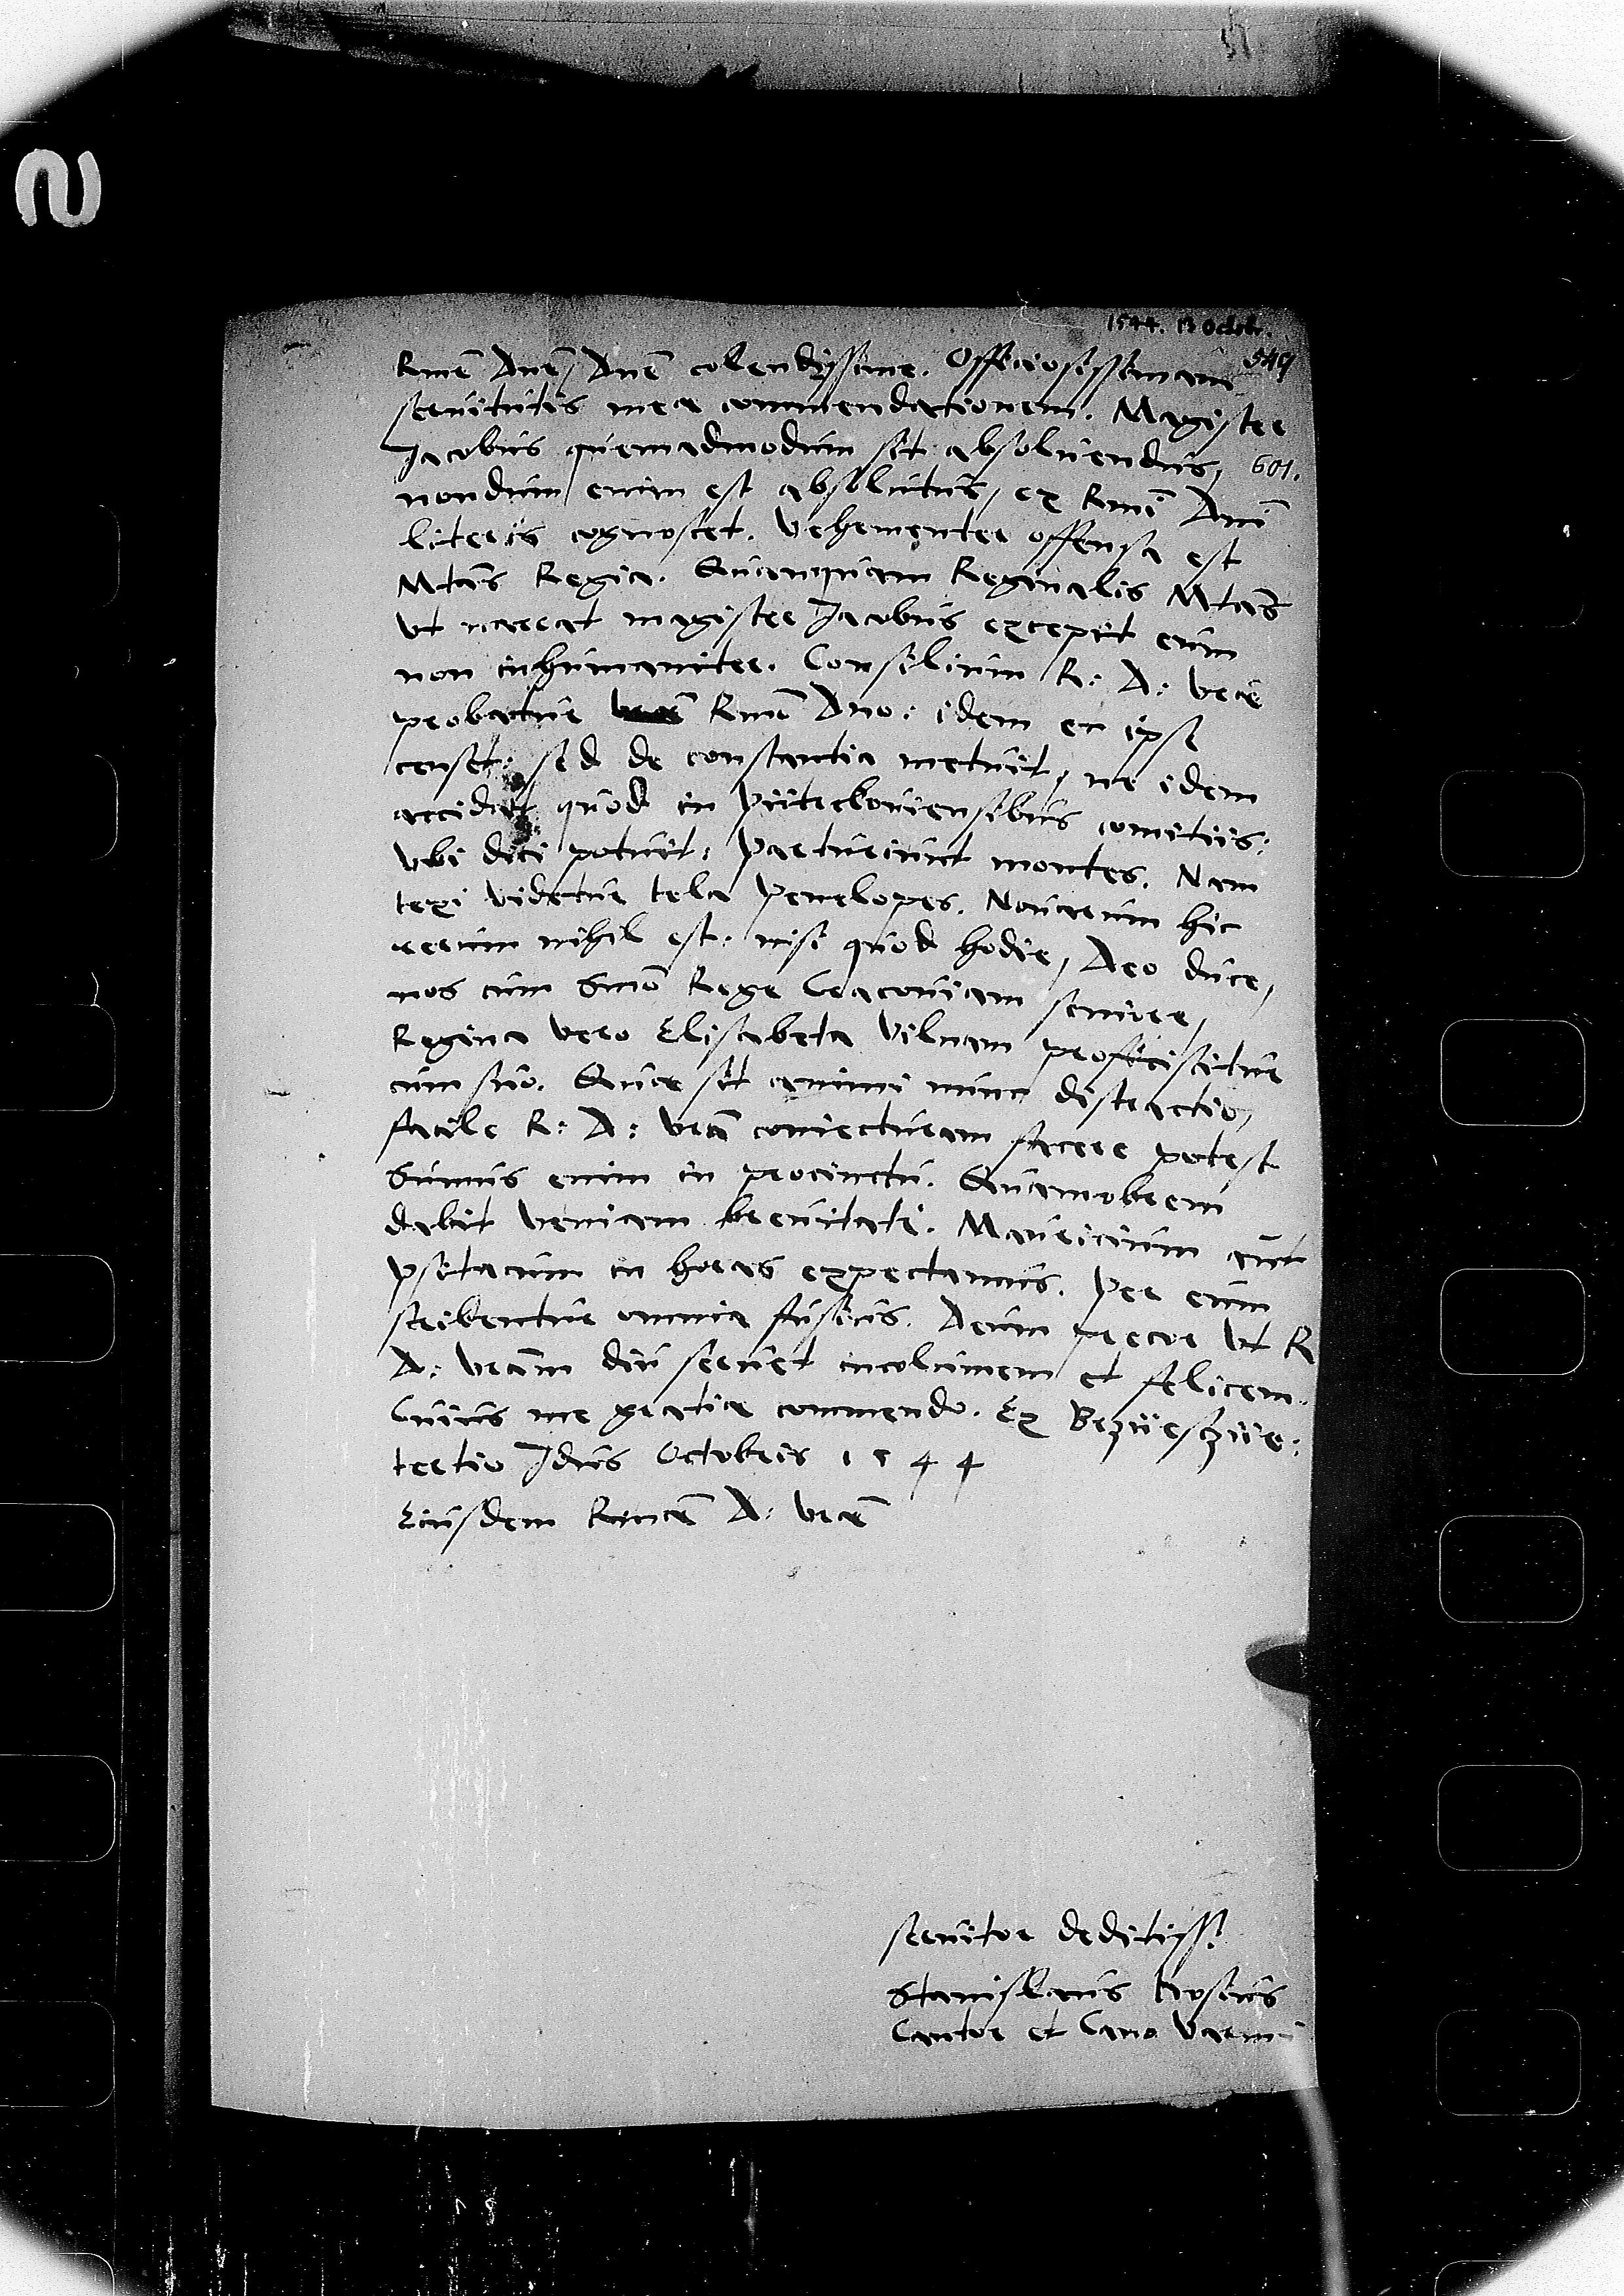 1544. 13 Octobr.
549
Rme͞ Dne͞, Dne͞ colendissime. Officiosissimam
seruitutis mea commendationem. Magister
Jacobus quemadmodum sit absoluendus,
601.
nondum enim est absolutus, ex Rmi͞ Dni͞
literis cognoscet. Vehementer offensa est
Mtas͞ Regia. Quanquam Reginalis Mtas͞
vt narrat magister Jacobus excepit eum
non inhumaniter. Consilium R: D: vrae͞
probatur Rmo͞ Dno: idem et ipse
censet: sed de constantia metuit, ne idem
accidat quod in Piiterkouiensibus comitiis:
vbi dici potuit: Parturiunt montes. Nam
texi videtur tela Penelopes. Nouarum hic
rerum nihil est: nisi quod hodie, Deo duce,
nos cum Smo͞ Rege Cracouiam
Regina vero Elisabeta Vilnam proficiscitur
cum suo. Quae sit animi nunc distractio,
facile R: D: vra͞ coniecturam facere potest
Sumus enim in procinctu. Quamobrem
dabit veniam breuitati. Mauricium aut
psitacum in horas expectamus. Per eum
scribentur omnia fusius. Deum precor vt R
D: vram͞ diu seruet incolumem et felicem.
Cuius me gratiae commendo. Ex Brzü
tertio Idus Octobris 1544
Eiusdem Rmae͞ D: vrae͞
seruitor deditiss:
Stanislaus Hosius
Cantor et Cano Varmi